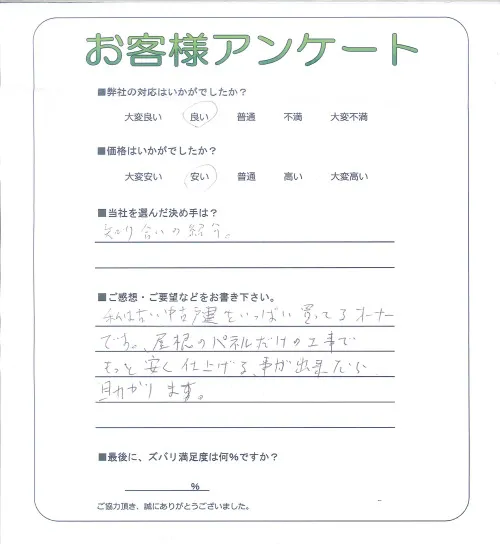 お客様アンケート
■弊社の対応はいかがでしたか？
大変良い 良い 普通 不満 大変不満
■価格はいかがでしたか？
大変安い 安い 普通 高い 大変高い
■当社を選んだ決め手は？
知り合いの紹介。
■ご感想・ご要望などをお書き下さい。
私は古い中古戸建をいっぱい買ってるオーナー
です。屋根のパネルだけの工事で
もっと安く仕上げる事が出来たら
助かります。
■最後に、ズバリ満足度は何％ですか？
％
ご協力頂き、誠にありがとうございました。